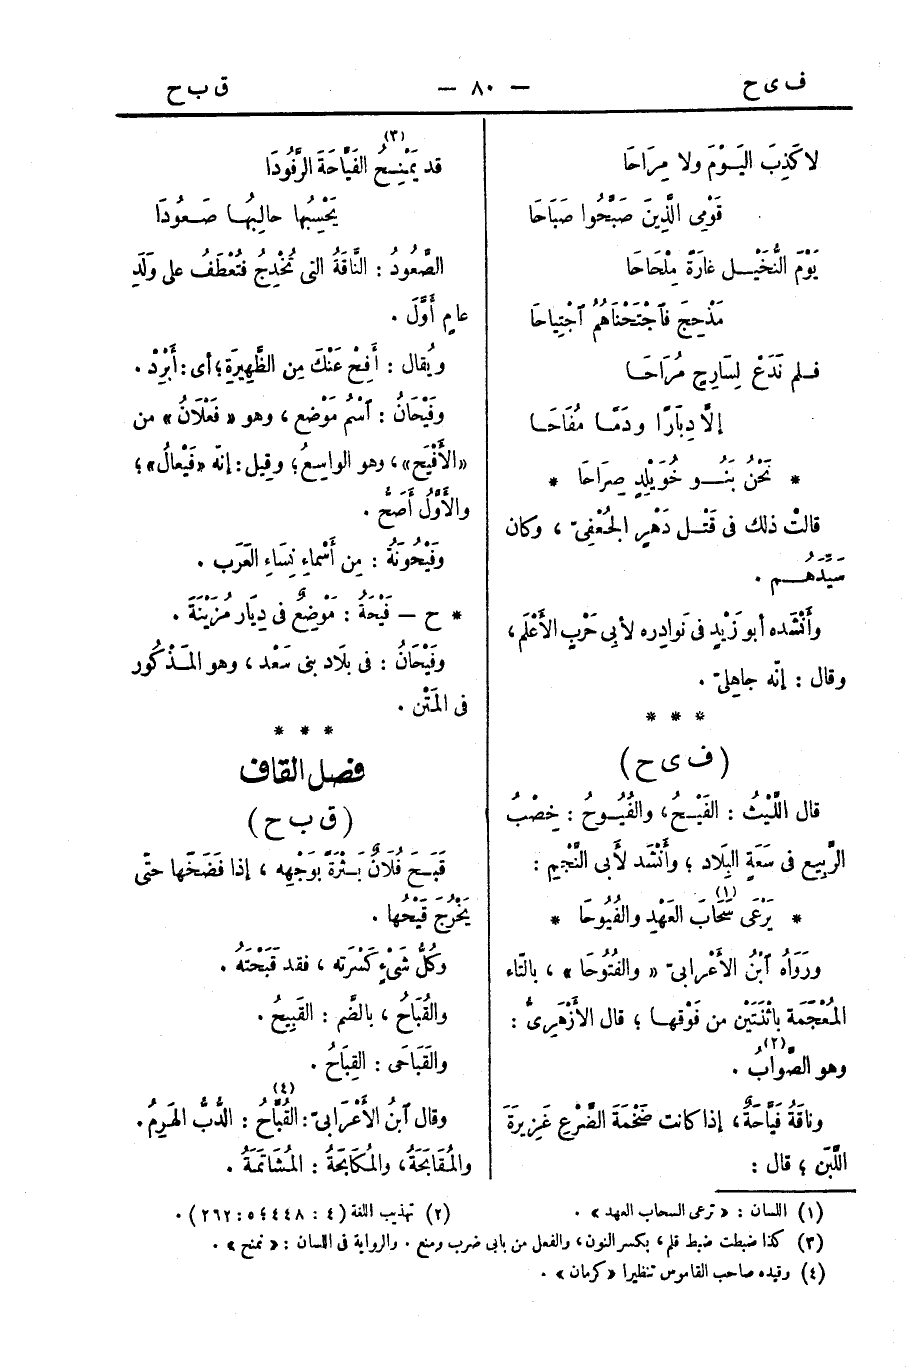 ف ى ح
— ٨٠ —
ق ب ح
لا كَذِبَ اليَوْمَ ولا مِرَاحَا
قَوْمِى الَّذِينَ صَبَّحُوا صَبَاحَا
يَوْمَ النُّخَيْـل غارَةً مِلْحَاحَا
مَذْحِجَ فَاجْتَحْنَاهُمُ اجْتِياحَا
فـلم نَدَعْ لِسَارِحٍ مُرَاحَـا
إلَّا دِيَارًا ودَمًـا مُفَاحَـا
* نَحْنُ بَنُـو خُوَيْلِدٍ صِرَاحَا *
قالتْ ذلك فى قَتْـل دَهْرٍ الجُعْفِىّ ، وكان
سَيِّدَهُـم .
وأَنْشَده أبو زَيْدٍ فى نَوادِره لأَبِى حَرْبٍ الأَعْلَم ،
وقال : إنّه جاهِلىّ .
* * *
( ف ى ح )
قال اللَّيْثُ : الفَيْـحُ ، والفُيُـوحُ : خِصْبُ
الرَّبِيع فى سَعَةِ البِلَاد ؛ وأَنْشَد لأَبى النَّجْمِ :
* يَرْعَى سَحَابَ العَهْدِ والفُيُوحَا (١) *
ورَوَاه ابْنُ الأَعْرابىّ « والفُتُوحَا » ، بالتّاء
المُعْجَمَة باثْنَتَيْن من فَوْقهـا ؛ قال الأزْهَرِىُّ :
وهو الصَّوابُ (٢) .
وناقَةٌ فَيَّاحَةٌ ، إذا كانت ضَخْمَةَ الضَّرْع غَزِيرَةَ
اللَّبَن ؛ قال :
قد يَمْنِـحُ (٣) الفَيَّاحَةَ الرَّفُودَا
يَحْسِبُها حالِبُهـا صَـعُودَا
الصَّعُودُ : النَّاقَةُ التى تُخْدِجُ فتُعْطَفُ على وَلَدِ
عامٍ أَوَّلَ .
ويُقال : أَفِحْ عَنْكَ مِن الظَّهِيرَةِ ؛ أى : أَبْرِدْ .
وفَيْحَانُ : اسْمُ مَوْضع ، وهو « فَعْلَانُ » من
«الأَفْيَح» ، وهو الواسِعُ ؛ وقِيل : إنّه «فَيْعالُ» ؛
والأَوَّلُ أَصَحُّ .
وفَيْحُونَةُ : مِن أَسْماءِ نِسَاءِ العَرَب .
* ح — فَيْحَةُ : مَوْضِعٌ فى دِيَار مُزَيْنَةَ .
وفَيْحَانُ : فى بلَاد بنى سَعْد ، وهو المَـذْكُور
فى المَتْن .
* * *
فصل القاف
( ق ب ح )
قَبَـحَ فُلَانٌ بَـثْرَةً بوَجْهِه ، إذا فَضَخَها حتّى
يَخْرُجَ قَيْحُها .
وكُلُّ شَىْءٍ كَسَرْتَه ، فقد قَبَحْتَهُ .
والقُبَاحُ ، بالضَّم : القَبِيحُ .
والقَبَاحَى : القِبَاحُ .
وقال ابنُ الأَعْرَابىّ : القُبَّاحُ (٤) : الدُّبُّ الهَرِمُ .
والمُقَابَحَةُ ، والمُكَابَحَةُ : المُشَاتَمَةُ .
(١) اللسان : « ترعى السحاب العهد » .
(٢) تهذيب اللغة ( ٤ : ٤٤٨ ؛ ٥ : ٢٦٢ ) .
(٣) كذا ضبطت ضبط قلم ، بكسر النون ، والفعل من بابى ضرب ومنع . والرواية فى اللسان : « تمنح » .
(٤) وقيده صاحب القاموس تنظيرا « كرمان » .